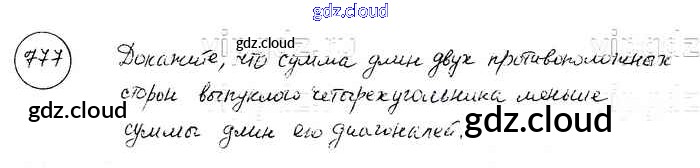 gdz.cloud
777 Докажите, что сумма длин двух противоположных
gdz.cloud
сторон выпуклого четырехугольника меньше
gdz.cloud
gdz.cloud
суммы длин его диагоналей.
gdz.cloud